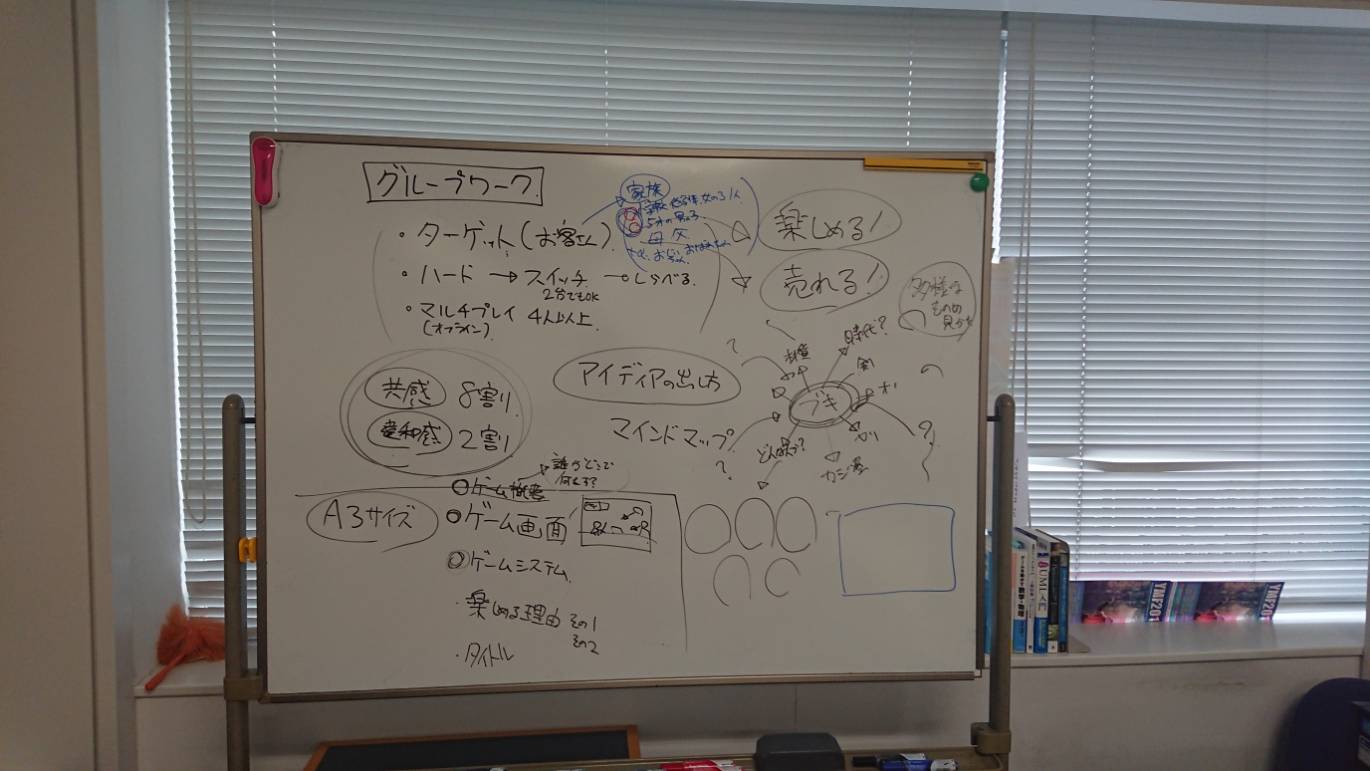 グループワーク
・ターゲット(お客さん)
家族
5才の男の子
母 父
・ハード → スイッチ → しらべる
2台でもOK
・マルチプレイ 4人以上
(オフライン)
楽しめる!
売れる!
多様な
もの の
見かた
共感 8割り
違和感 2割り
アイディアの出し方
マインドマップ
ブキ
時代?
剣
カジ屋
A3サイズ
ゲーム概要
誰がどこで
何する?
ゲーム画面
ゲームシステム
・楽しめる理由 その1
その2
・タイトル
UML入門
数学・物理